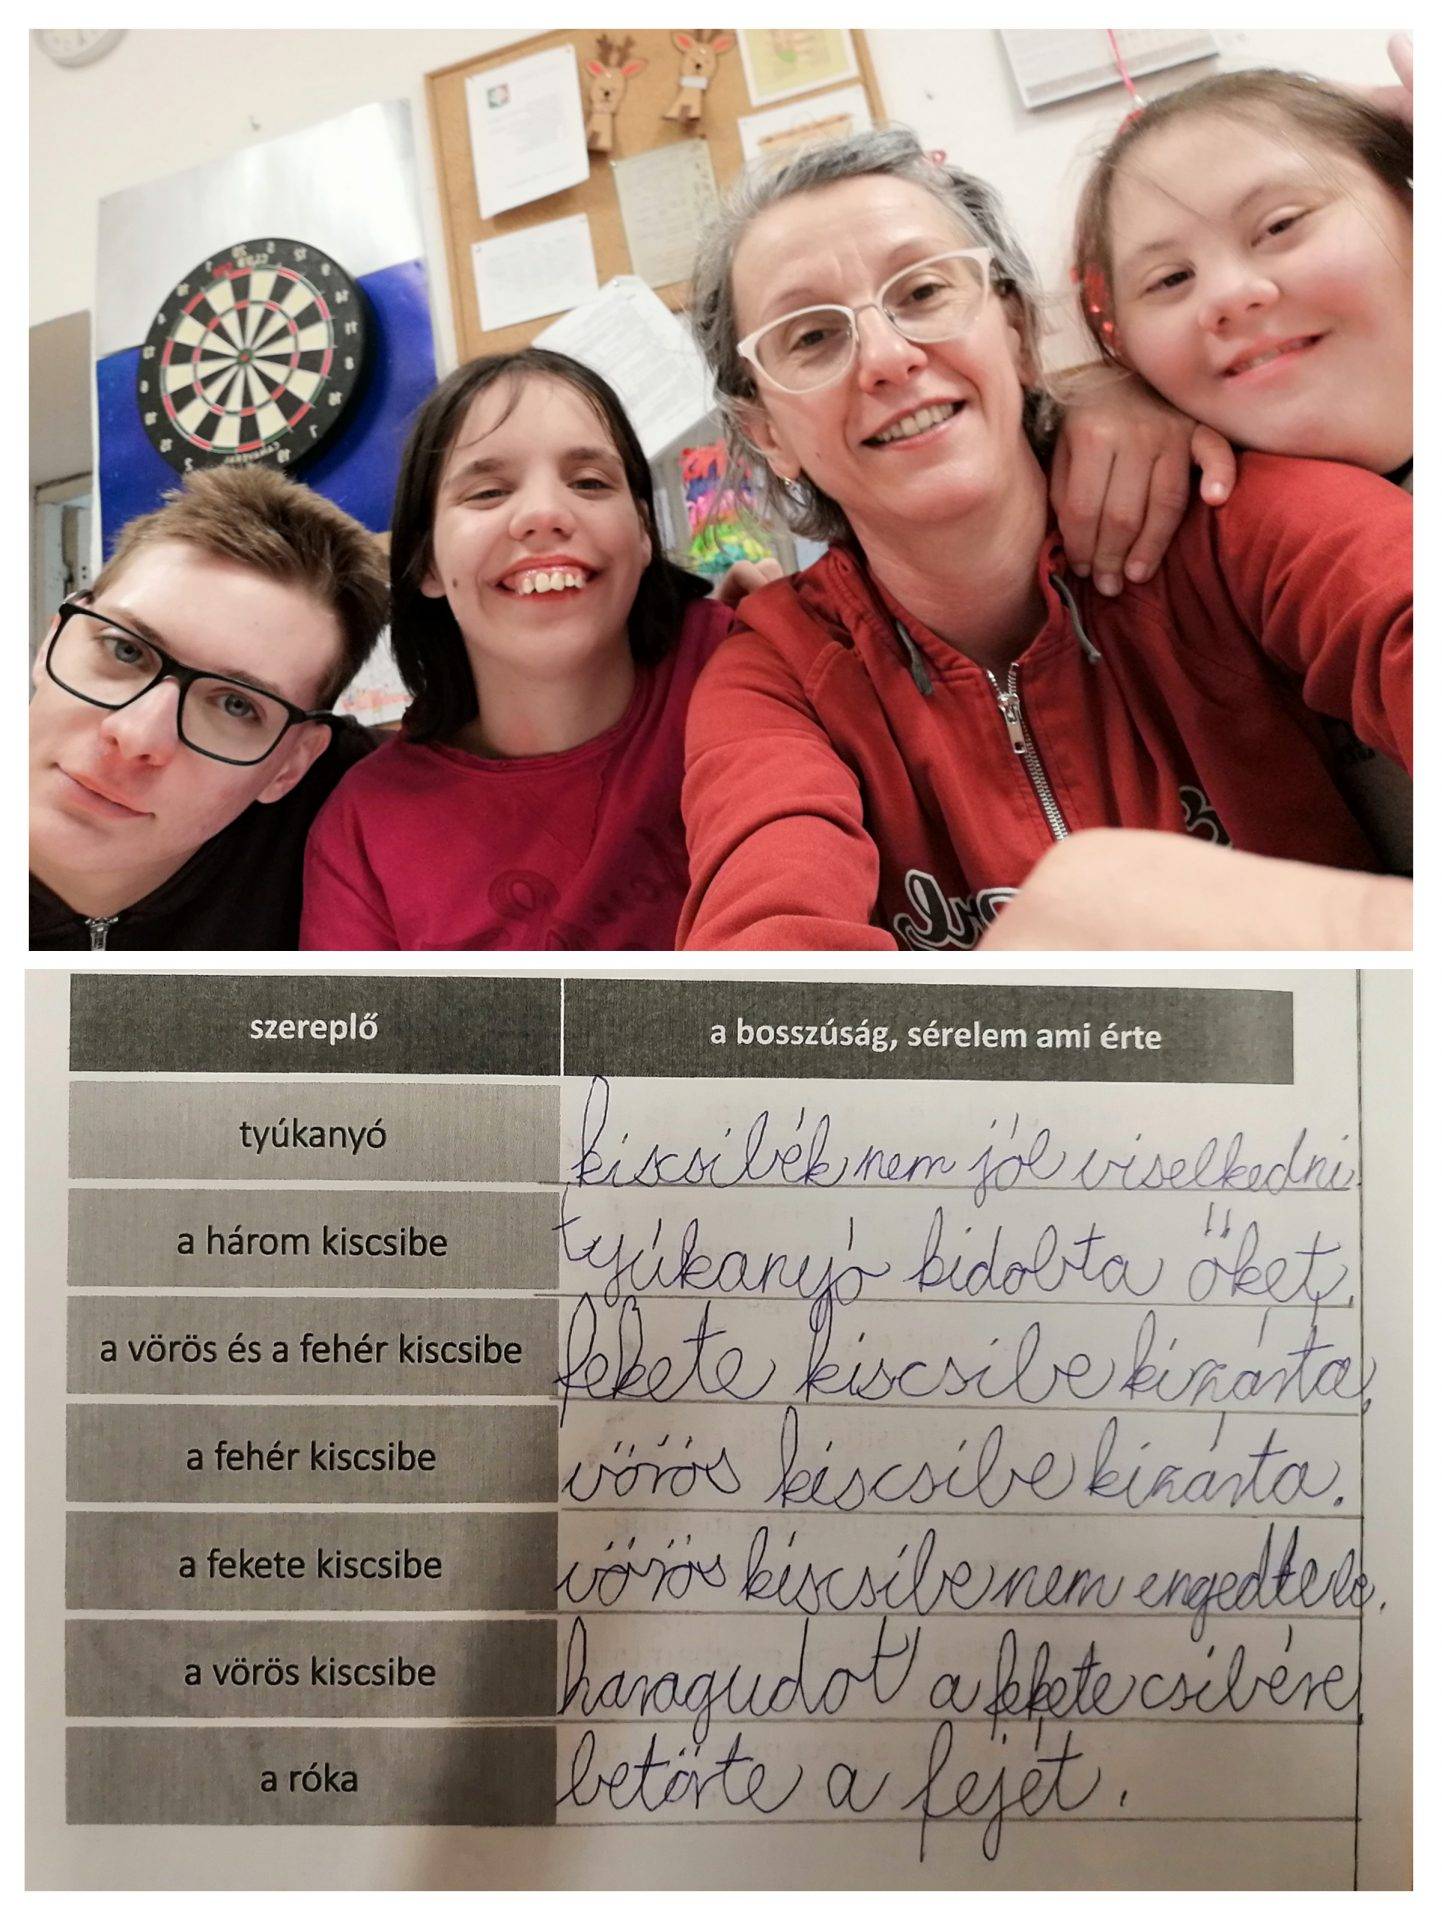 szereplő a bosszúság, sérelem ami érte
tyúkanyó kiscsibék nem jól viselkedni.
a három kiscsibe tyúkanyó kidobta őket.
a vörös és a fehér kiscsibe fekete kiscsibe kizárta.
a fehér kiscsibe vörös kiscsibe kizárta.
a fekete kiscsibe vörös kiscsibe nem engedte be.
a vörös kiscsibe haragudot a fekete csibére
a róka betörte a fejét.